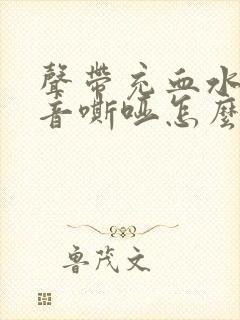 聲帶充血水
音嘶啞怎麼
魯茂文